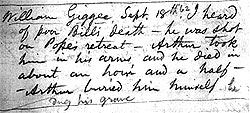 William Giggee, Sept. 18th/62 I heard
of poor Bill's death - he was shot
on Pope's retreat - Arthur took
him in his arms, and he died in
about an hour and a half -
- Arthur buried him himself - he
dug his grave